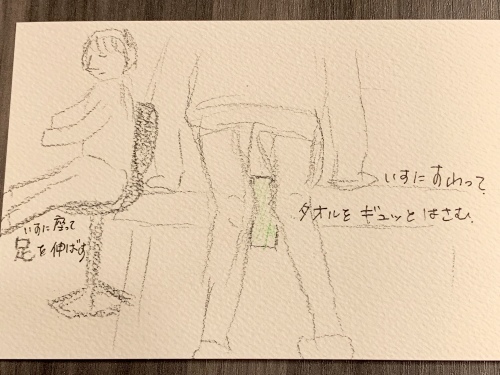 いすに座って
足を伸ばす
いすにすわって、
タオルを ギュッとはさむ。